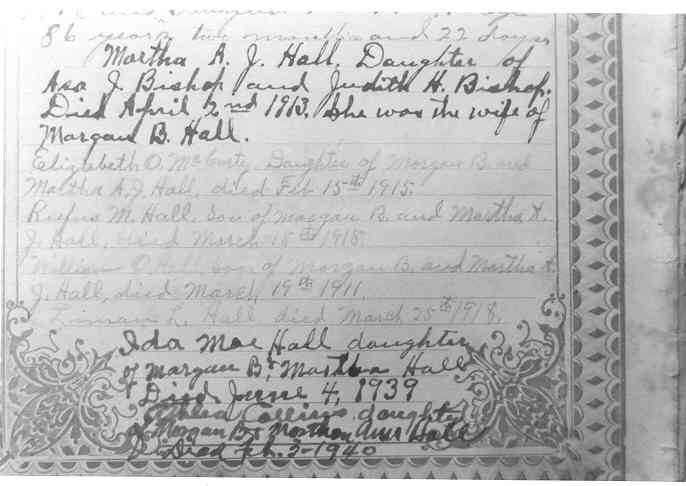 86 years two months and 22 Days
Martha A. J. Hall. Daughter of
Asa J. Bishop and Judith H. Bishop.
Died April 2nd 1913. She was the wife of
Morgan B. Hall.
Elizabeth O. McCarty Daughter of Morgan B. and
Martha A. J. Hall, died Feb 15th 1915.
Rufus M. Hall, Son of Morgan B. and Martha A.
J. Hall, died March 15th 1915.
William O. Hall, Son of Morgan B. and Martha A.
J. Hall, died March 19th 1911.
L. Hall died March 25th 1918.
Ida Mae Hall daughter
of Morgan B. & Martha Hall
Died June 4, 1939
Collins daughter
of Morgan B & Hall
Died Feb. 2-1940